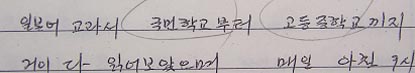 일본어 교과서 국민학교부터 고등중학교까지
거이 다 읽어보았으며 매일 아침 9시